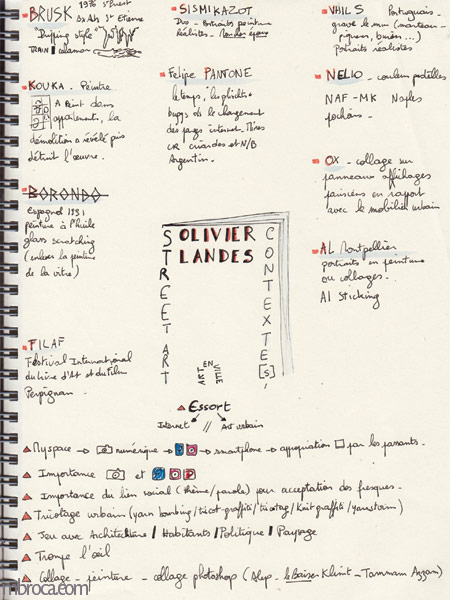 BRUSK 1976 St Priest
Bx Arts St Etienne
"Dripping style"
TRAIN / calamar
KOUKA. Peintre
A Peint dans
appartements, la
démolition a révélé puis
détruit l'œuvre.
BORONDO
Espagnol 1931
peinture à l'huile
glass scratching
(enlever la peinture
de la vitre)
FILAF
Festival International
du Livre d'Art et du Film
Perpignan.
SISMIKAZOT
Duo - Portraits peinture
Réalistes.
Felipe PANTONE
le temps, les
bugs de le chargement
des pages internet.
criardes et N/B
Argentin.
VHILS Portuguais-
grave le mur (marteau-
piqueur, burin...)
portraits réalistes
NELIO - couleurs pastelles
NAF-MK Naples
pochoirs.
OX - collage sur
panneaux affichages
parisiens en rapport
avec le mobilier urbain
AL Montpellier
portraits en peinture
ou collages.
Al Sticking
OLIVIER
LANDES
STREET ART
CONTEXTE[s]
ART EN VILLE
Essort
Internet // Art urbain
Myspace → numérique → → smartphone → appropriation par les passants.
Importance et
Importance du lien social (thème/parole) pour acceptation des fresques.
Tricotage urbain (yarn bombing/tricot-graffiti/tricotag/knit graffiti/yarnstorm)
Jeu avec Architecture / Habitants / Politique / Paysage
Trompe l'œil
Collage - peinture - collage photoshop (Alep. le Baiser Klimt - Tammam Azzam)
mbroca.com